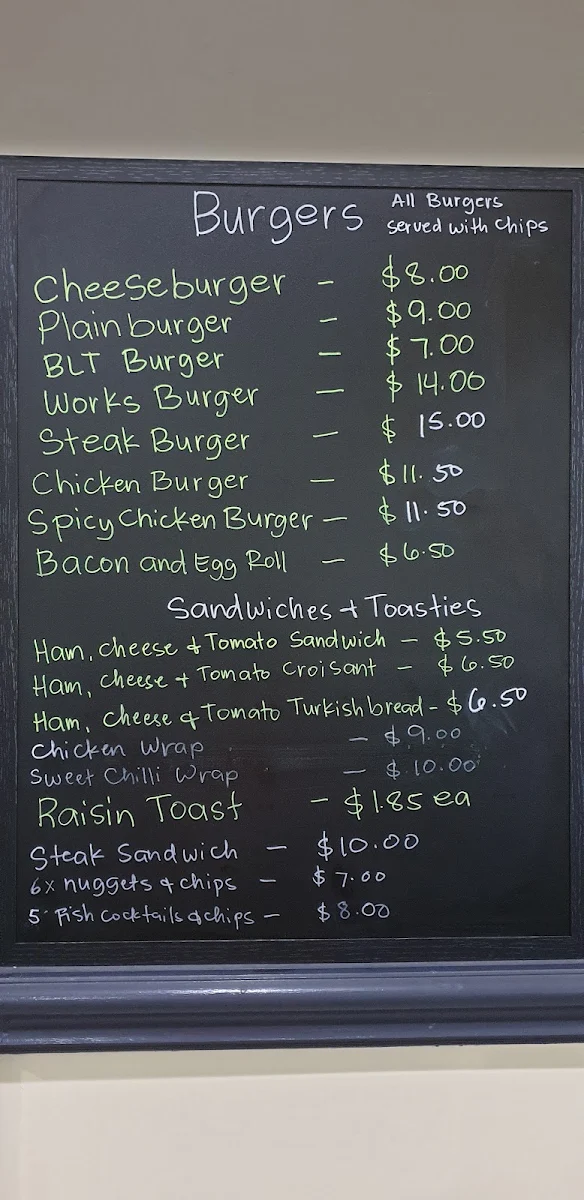 Burgers All Burgers served with chips
Cheeseburger - $8.00
Plain burger - $9.00
BLT Burger - $7.00
Works Burger - $14.00
Steak Burger - $ 15.00
Chicken Burger - $11.50
Spicy Chicken Burger - $11.50
Bacon and Egg Roll - $6.50
Sandwiches + Toasties
Ham, cheese & Tomato Sandwich - $5.50
Ham, Cheese + Tomato Croisant - $6.50
Ham, Cheese & Tomato Turkish bread - $6.50
Chicken Wrap - $9.00
Sweet Chilli Wrap - $10.00
Raisin Toast - $1.85 ea
Steak Sandwich - $10.00
6x nuggets & chips - $7.00
5 Fish cocktails & chips - $8.00